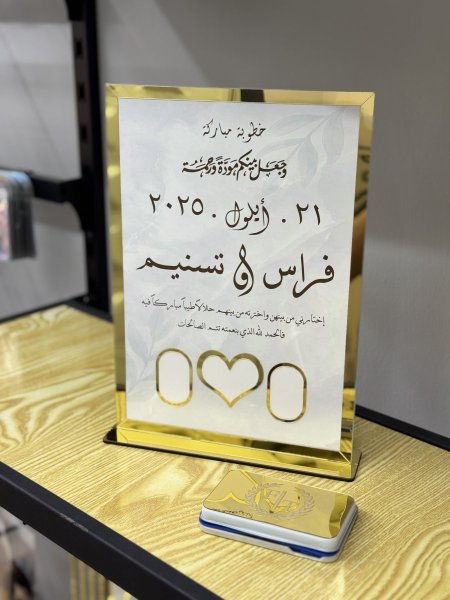 خطوبة مباركة
وجعل بينكم مودة ورحمة
٢١ . أيلول . ٢٠٢٥
فراس و تسنيم
إختارني من بينهن واخترته من بينهم حلالاً طيباً مباركاً فيه
فالحمد لله الذي بنعمته تتم الصالحات